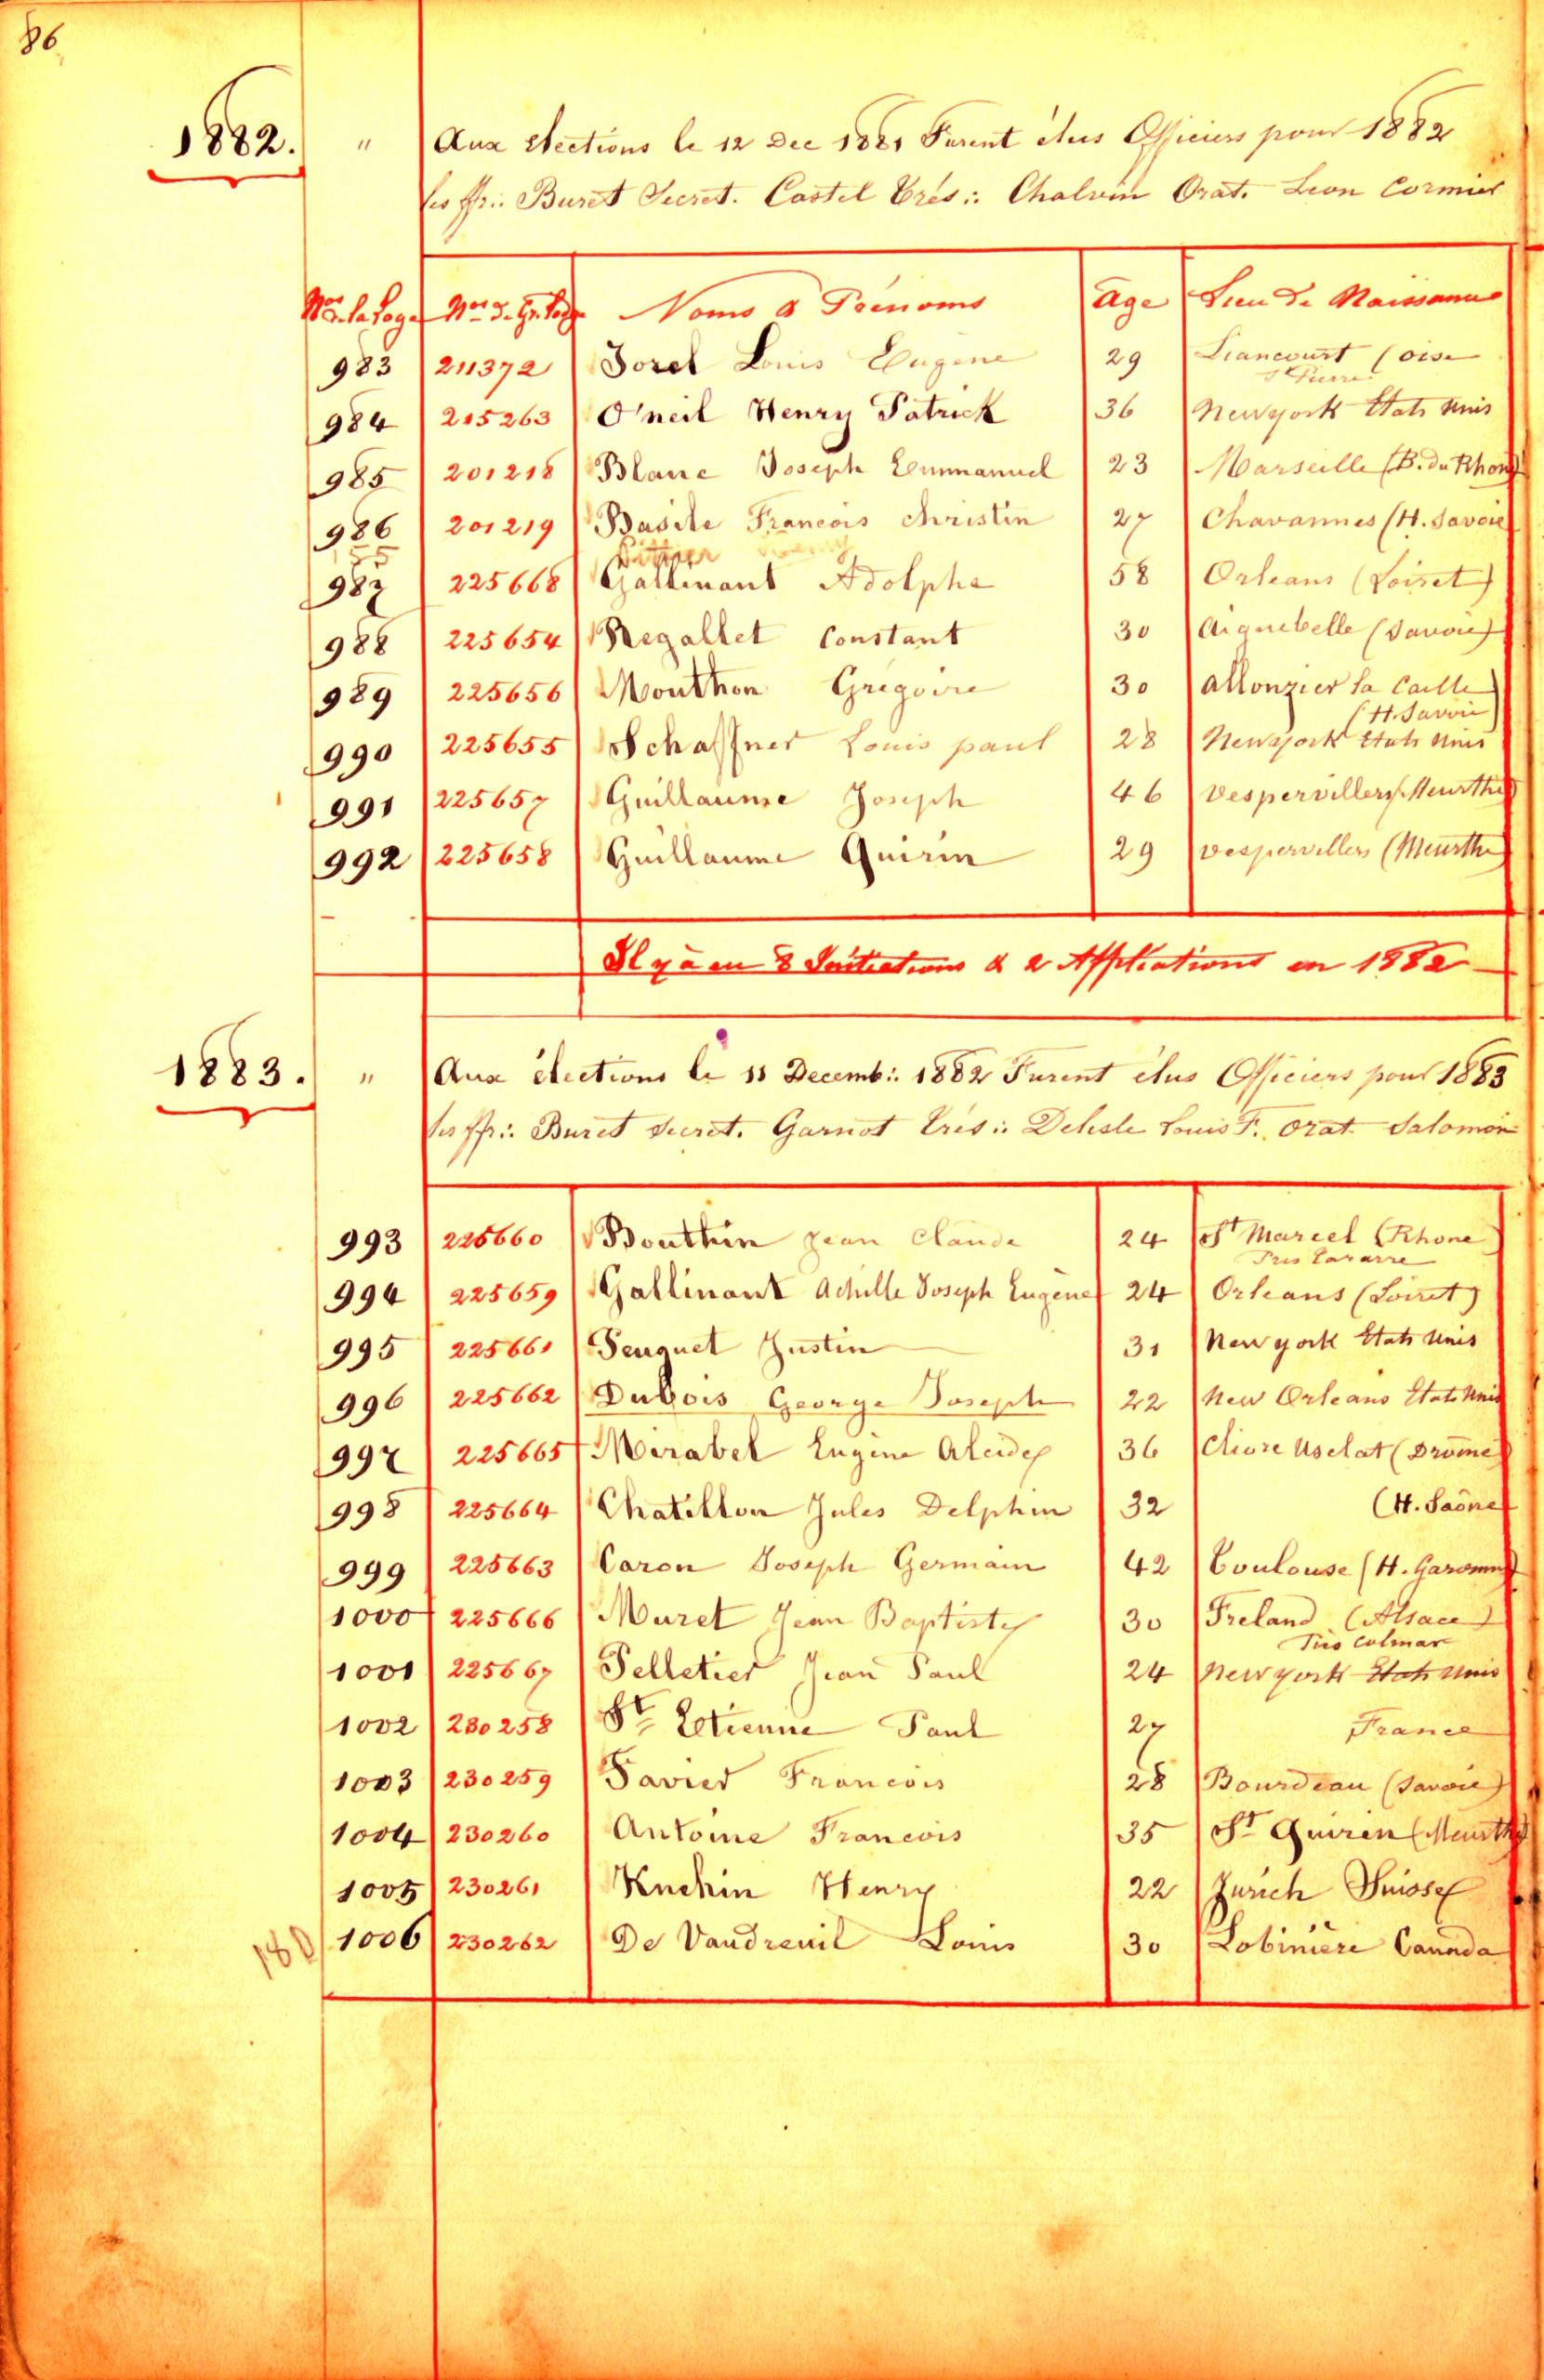 86
1882. " Aux élections le 12 Dec 1881 Furent élus Officiers pour 1882
les ffr∴ Buret Secret. Castel Trés∴ Chalvin Orat. Leon Cormier
Nos de la Loge Nos de Gr. Loge Noms & Prénoms Age Lieu de Naissance
983 211372 Sorel Louis Eugène 29 Liancourt (Oise
St Pierre
984 215263 O'neil Henry Patrick 36 Newyork Etats Unis
985 201218 Blanc Joseph Emmanuel 23 Marseille (B. du Rhone)
986 201219 Basile Francois Christin 27 Chavannes (H. Savoie)
987 225668 Gallinant Adolphe 58 Orleans (Loiret)
988 225654 Regallet Constant 30 Aiguebelle (Savoie)
989 225656 Mouthon Grégoire 30 Allonzier la Caille
(H. Savoie)
990 225655 Schaffner Louis paul 28 Newyork Etats Unis
991 225657 Guillaume Joseph 46 Vespervillers (Meurthe)
992 225658 Guillaume Quirin 29 Vespervillers (Meurthe)
Il y à eu 8 Initiations & 2 Affiliations en 1882
1883. " Aux élections le 11 Decemb∴ 1882 Furent élus Officiers pour 1883
les ffr∴ Buret Secret. Garnot Trés∴ Delisle Louis F. Orat. Salomon
993 225660 Bouthin Jean Claude 24 St Marcel (Rhone)
Près Tararre
994 225659 Gallinant Achille Joseph Eugène 24 Orleans (Loiret)
995 225661 Feuquet Justin 31 New york Etats Unis
996 225662 Dubois George Joseph 22 New Orleans Etats Unis
997 225665 Mirabel Eugène Alcide 36 Cliore Usclat (Drôme)
998 225664 Chatillon Jules Delphin 32 (H. Saône
999 225663 Caron Joseph Germain 42 Toulouse (H. Garonne)
1000 225666 Muret Jean Baptiste 30 Freland (Alsace)
Près Colmar
1001 225667 Pelletier Jean Paul 24 New york Etats Unis
1002 230258 St Etienne Paul 27 France
1003 230259 Favier Francois 28 Bourdeau (Savoie)
1004 230260 Antoine Francois 35 St Quirin (Meurthe)
1005 230261 Kuchin Henry 22 Zurich Suisse
1006 230262 De Vaudreuil Louis 30 Lobinière Canada